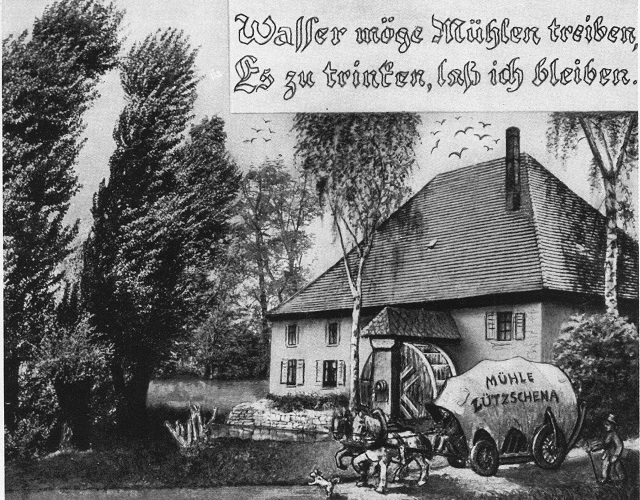 Wasser möge Mühlen treiben,
Es zu trinken, laß ich bleiben.
MÜHLE
LÜTZSCHENA